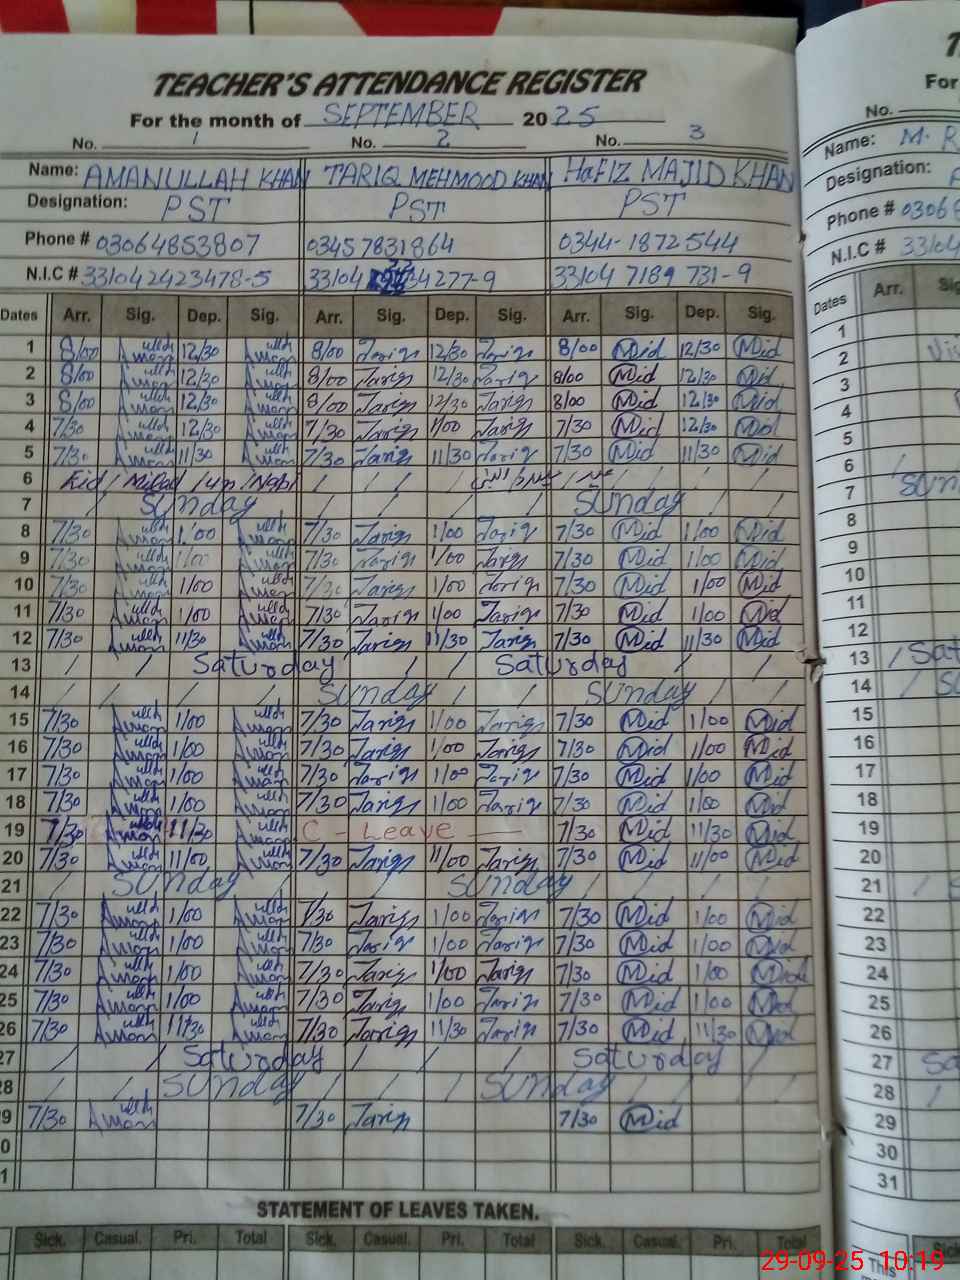 TEACHER'S ATTENDANCE REGISTER
For the month of SEPTEMBER 2025
No. 1 No. 2 No. 3
Name: AMANULLAH KHAN TARIQ MEHMOOD KHAN HaFIZ MAJID KHAN
Designation: PST PST PST
Phone # 03064853807 03457831864 0344-1872544
N.I.C # 331042423478-5 33104 34277-9 33104 7189 731-9
Dates Arr. Sig. Dep. Sig. Arr. Sig. Dep. Sig. Arr. Sig. Dep. Sig.
1 8/00 Aman ullah 12/30 Aman ullah 8/00 Tariq 12/30 Tariq 8/00 Mjid 12/30 Mjid
2 8/00 Aman ullah 12/30 Aman ullah 8/00 Tariq 12/30 Tariq 8/00 Mjid 12/30 Mjid
3 8/00 Aman ullah 12/30 Aman ullah 8/00 Tariq 12/30 Tariq 8/00 Mjid 12/30 Mjid
4 7/30 Aman ullah 12/30 Aman ullah 7/30 Tariq 1/00 Tariq 7/30 Mjid 12/30 Mjid
5 7/30 Aman ullah 11/30 Aman ullah 7/30 Tariq 11/30 Tariq 7/30 Mjid 11/30 Mjid
6 Eid / Milad / un / Nabi / / / / / /
7 / / Sunday / / / / Sunday / /
8 7/30 Aman ullah 1/00 Aman ullah 7/30 Tariq 1/00 Tariq 7/30 Mjid 1/00 Mjid
9 7/30 Aman ullah 1/00 Aman ullah 7/30 Tariq 1/00 Tariq 7/30 Mjid 1/00 Mjid
10 7/30 Aman ullah 1/00 Aman ullah 7/30 Tariq 1/00 Tariq 7/30 Mjid 1/00 Mjid
11 7/30 Aman ullah 1/00 Aman ullah 7/30 Tariq 1/00 Tariq 7/30 Mjid 1/00 Mjid
12 7/30 Aman ullah 11/30 Aman ullah 7/30 Tariq 11/30 Tariq 7/30 Mjid 11/30 Mjid
13 / / / Saturday / / / Saturday / /
14 / / / / / Sunday / / Sunday / /
15 7/30 Aman ullah 1/00 Aman ullah 7/30 Tariq 1/00 Tariq 7/30 Mjid 1/00 Mjid
16 7/30 Aman ullah 1/00 Aman ullah 7/30 Tariq 1/00 Tariq 7/30 Mjid 1/00 Mjid
17 7/30 Aman ullah 1/00 Aman ullah 7/30 Tariq 1/00 Tariq 7/30 Mjid 1/00 Mjid
18 7/30 Aman ullah 1/00 Aman ullah 7/30 Tariq 1/00 Tariq 7/30 Mjid 1/00 Mjid
19 7/30 Aman ullah 11/30 Aman ullah C - Leave — 7/30 Mjid 11/30 Mjid
20 7/30 Aman ullah 11/00 Aman ullah 7/30 Tariq 11/00 Tariq 7/30 Mjid 11/00 Mjid
21 / Sunday / / / Sunday / / / /
22 7/30 Aman ullah 1/00 Aman ullah 7/30 Tariq 1/00 Tariq 7/30 Mjid 1/00 Mjid
23 7/30 Aman ullah 1/00 Aman ullah 7/30 Tariq 1/00 Tariq 7/30 Mjid 1/00 Mjid
24 7/30 Aman ullah 1/00 Aman ullah 7/30 Tariq 1/00 Tariq 7/30 Mjid 1/00 Mjid
25 7/30 Aman ullah 1/00 Aman ullah 7/30 Tariq 1/00 Tariq 7/30 Mjid 1/00 Mjid
26 7/30 Aman ullah 11/30 Aman ullah 7/30 Tariq 11/30 Tariq 7/30 Mjid 11/30 Mjid
27 / / Saturday / / / / Saturday /
28 / / Sunday / / / Sunday / / / /
9 7/30 Aman ullah 7/30 Tariq 7/30 Mjid
0
1
STATEMENT OF LEAVES TAKEN.
Sick. Casual. Pri. Total Sick. Casual. Pri. Total Sick. Casual. Pri. Total
For
No.
Name: M. R
Designation:
Phone # 0306
N.I.C # 33104
Dates Arr. Sig
1
2
3
4
5
6
7 Sun
8
9
10
11
12
13 / Sat
14 /
15
16
17
18
19
20
21 /
22
23
24
25
26
27 Sa
28 /
29
30
31
Sick
This
29-09-25 10:19